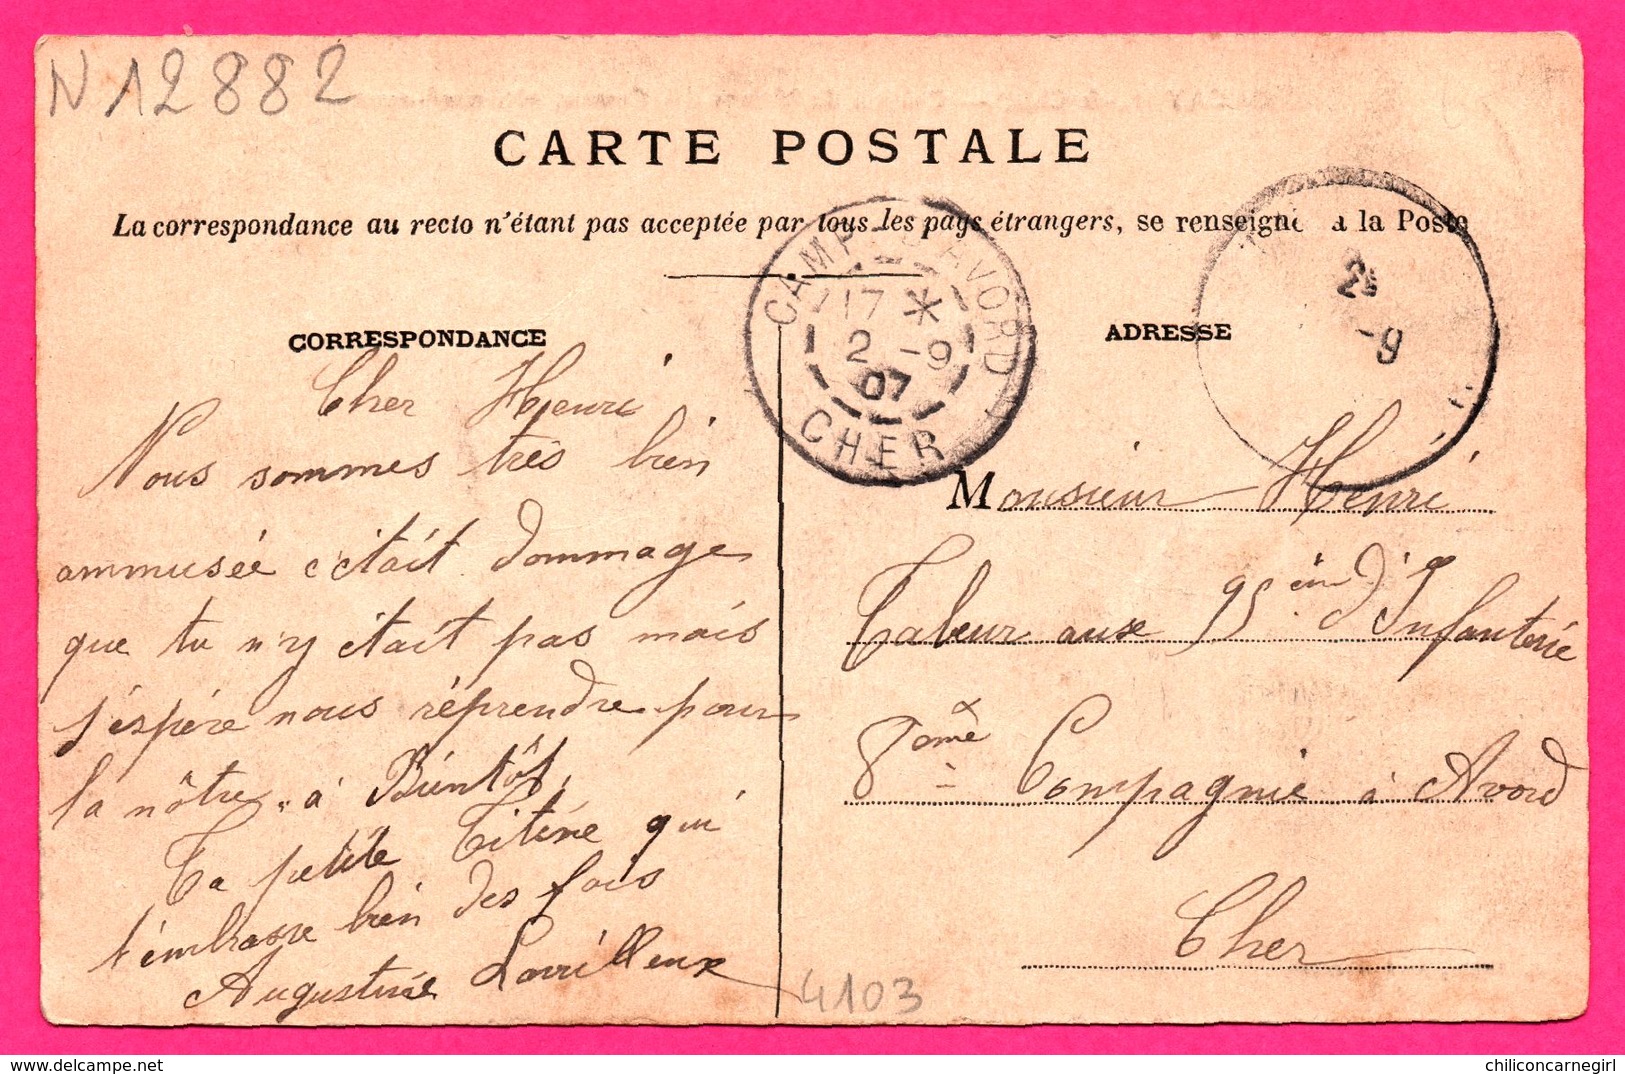 N 12882
CARTE POSTALE
La correspondance au recto n'étant pas acceptée par tous les pays étrangers, se renseigner à la Poste
CORRESPONDANCE
Cher Henri
Nous sommes très bien
ammusée c'était dommage
que tu n'y était pas mais
j'espére nous réprendre pour
la nôtre à Bientôt,
Ta petite Titine qui
t'embrasse bien des fois
Augustine
4103
CAMP D'AVORD
17 *
2 -9
07
CHER
ADRESSE
2
-9
Monsieur Henri
aux 95 ém d'Infanterie
8 eme Compagnie à Avord
Cher
chiliconcarnegirl
delcampe.net